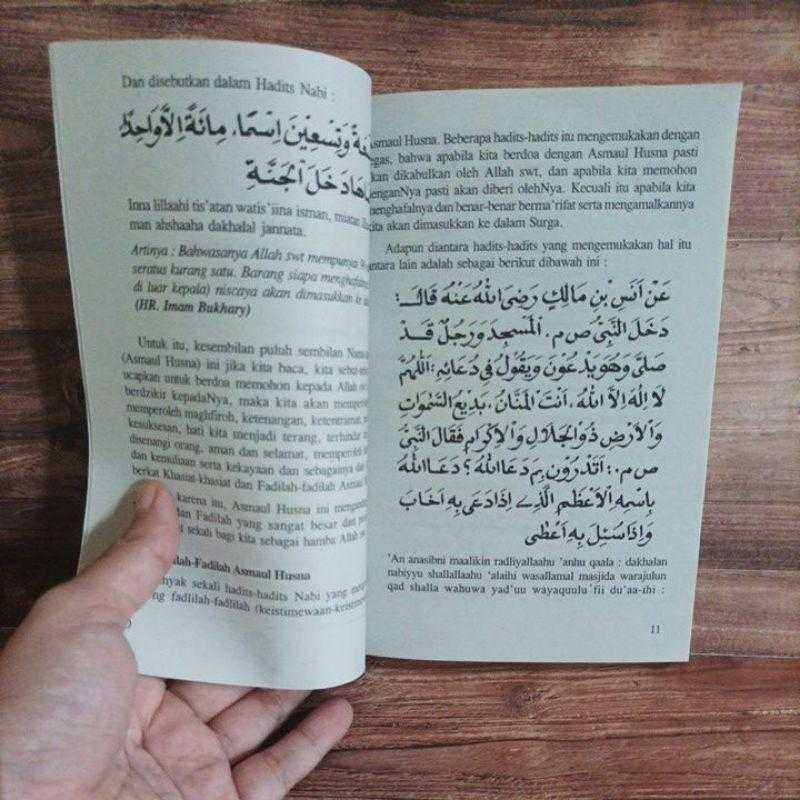 Dan disebutkan dalam Hadits Nabi :
وَتِسْعِيْنَ اِسْمًا، مِائَةً اِلَّا وَاحِدً
دَخَلَ الْجَنَّةِ
Inna lillaahi tis'atan watis'iina isman, miatan
man ahshaaha dakhalal jannata.
Artinya : Bahwasanya Allah swt mempunyai
seratus kurang satu. Barang siapa menghafalnya
di luar kepala) niscaya akan dimasukkan ke
(HR. Imam Bukhary)
Untuk itu, kesembilan puluh sembilan Nama
(Asmaul Husna) ini jika kita baca, kita sebut
ucapkan untuk berdoa memohon kepada Allah
berdzikir kepadaNya, maka kita akan
memperoleh maghfiroh, ketenangan, ketentraman,
kesuksesan, hati kita menjadi terang, terhindar
disenangi orang, aman dan selamat, memperoleh
dan kemuliaan serta kekayaan dan sebagainya
berkat Khasiat-khasiat dan Fadilah-fadilah Asmaul
karena itu, Asmaul Husna ini
dan Fadilah yang sangat besar dan
sekali bagi kita sebagai hamba Allah
-Fadilah Asmaul Husna
sekali hadits-hadits Nabi yang
fadlilah-fadlilah
Asmaul Husna. Beberapa hadits-hadits itu mengemukakan dengan
bahwa apabila kita berdoa dengan Asmaul Husna pasti
dikabulkan oleh Allah swt, dan apabila kita memohon
pasti akan diberi olehNya. Kecuali itu apabila kita
dan benar-benar berma'rifat serta mengamalkannya
akan dimasukkan ke dalam Surga.
Adapun diantara hadits-hadits yang mengemukakan hal itu
lain adalah sebagai berikut dibawah ini :
عَنْ اَنَسِ بْنِ مَالِكٍ رَضِىَ اللهُ عَنْهُ قَالَ :
دَخَلَ النَّبِىُّ ص م. الْمَسْجِدَ وَرَجُلٌ قَدْ
صَلَّى وَهُوَ يَدْعُوْنَ وَيَقُوْلُ فِى دُعَائِهِ : اَللّٰهُمَّ
لَا اِلٰهَ اِلَّا اللهُ، اَنْتَ الْمَنَّانُ، بَدِيْعُ السَّمٰوَاتِ
وَالْاَرْضِ ذُو الْجَلَالِ وَالْاِكْرَامِ فَقَالَ النَّبِىُّ
ص م : اَتَدْرُوْنَ بِمَ دَعَا اللهُ ؟ دَعَا اللهُ
بِاسْمِهِ الْاَعْظَمِ الَّذِىْ اِذَا دَعَى بِهِ اَجَابَ
وَاِذَا سُئِلَ بِهِ اَعْطٰى
'An anasibni maalikin radliyallaahu 'anhu qaala : dakhalan
nabiyyu shallallaahu 'alaihi wasallamal masjida warajulun
qad shalla wahuwa yad'uu wayaquulu fii du'aa-ihi :
11